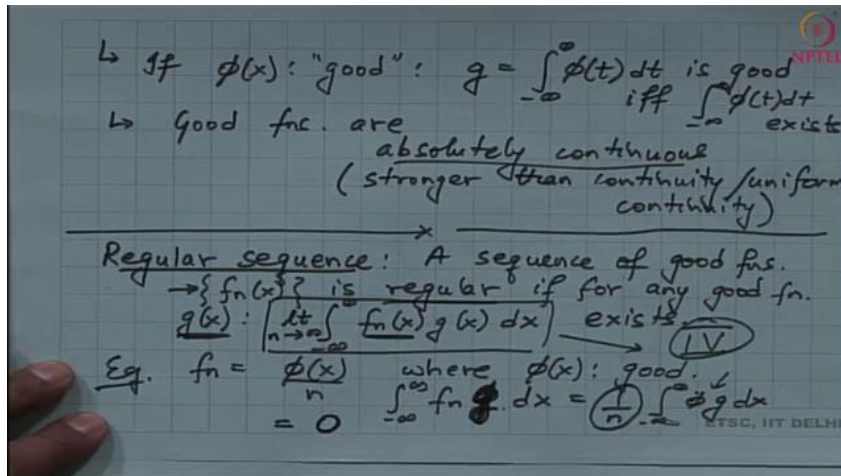 ↳ If ϕ(x): "good": g = ∫_{-∞}^{∞} ϕ(t) dt is good
iff ∫_{-∞}^{∞} ϕ(t) dt exists
↳ Good fnc. are
absolutely continuous
(stronger than continuity/uniform
continuity)
Regular sequence: A sequence of good fns.
→{fn(x)} is regular if for any good fn.
g(x): lt_{n→∞} ∫_{-∞}^{∞} fn(x) g(x) dx exists. IV
Eg. fn = ϕ(x)/n where ϕ(x): good.
∫_{-∞}^{∞} fn g. dx = 1/n ∫_{-∞}^{∞} ϕ g dx
= 0
NPTEL
ETSC, IIT DELHI